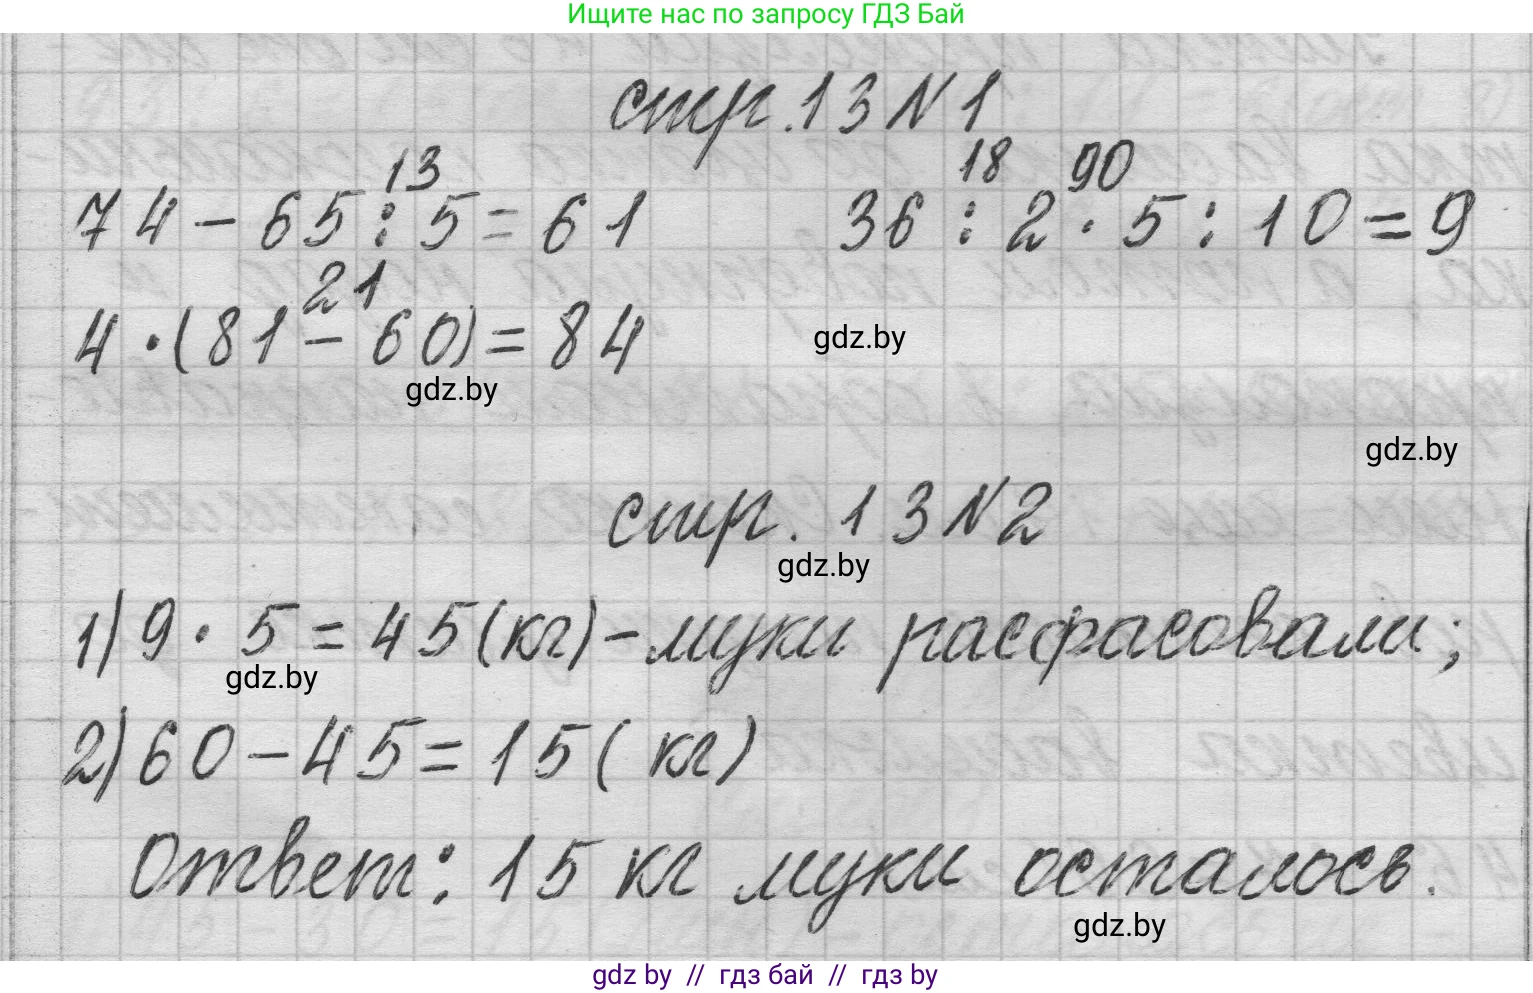 Ищите нас по запросу ГДЗ Бай
стр. 13 N 1
13 18 90
74 - 65 : 5 = 61 36 : 2 · 5 : 10 = 9
21
4 · (81 - 60) = 84 gdz.by
gdz.by
gdz.by
стр. 13 N 2
gdz.by
1) 9 · 5 = 45 (кг) - муки расфасовали;
gdz.by
2) 60 - 45 = 15 (кг)
Ответ: 15 кг муки осталось.
gdz.by
gdz by // гдз бай // гдз by